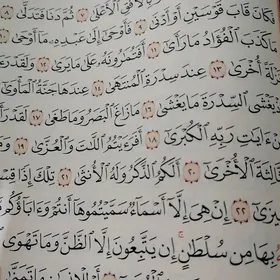 ٱلْأَعْلَىٰ ٧ ثُمَّ دَنَا فَتَدَلَّىٰ
كَانَ قَابَ قَوْسَيْنِ أَوْ أَدْنَىٰ ٩ فَأَوْحَىٰٓ إِلَىٰ عَبْدِهِۦ مَآ أَوْحَىٰ
كَذَبَ ٱلْفُؤَادُ مَا رَأَىٰٓ ١١ أَفَتُمَٰرُونَهُۥ عَلَىٰ مَا يَرَىٰ ١٢ وَلَقَدْ رَءَا
نَزْلَةً أُخْرَىٰ ١٣ عِندَ سِدْرَةِ ٱلْمُنتَهَىٰ ١٤ عِندَهَا جَنَّةُ ٱلْمَأْوَىٰٓ
يَغْشَى ٱلسِّدْرَةَ مَا يَغْشَىٰ ١٦ مَا زَاغَ ٱلْبَصَرُ وَمَا طَغَىٰ ١٧ لَقَدْ
ءَايَٰتِ رَبِّهِ ٱلْكُبْرَىٰٓ ١٨ أَفَرَءَيْتُمُ ٱللَّٰتَ وَٱلْعُزَّىٰ ١٩
ٱلثَّالِثَةَ ٱلْأُخْرَىٰٓ ٢٠ أَلَكُمُ ٱلذَّكَرُ وَلَهُ ٱلْأُنثَىٰ ٢١ تِلْكَ إِذًا قِسْ
٢٢ إِنْ هِىَ إِلَّآ أَسْمَآءٌ سَمَّيْتُمُوهَآ أَنتُمْ وَءَابَآؤُكُم
بِهَا مِن سُلْطَٰنٍ إِن يَتَّبِعُونَ إِلَّا ٱلظَّنَّ وَمَا تَهْوَى